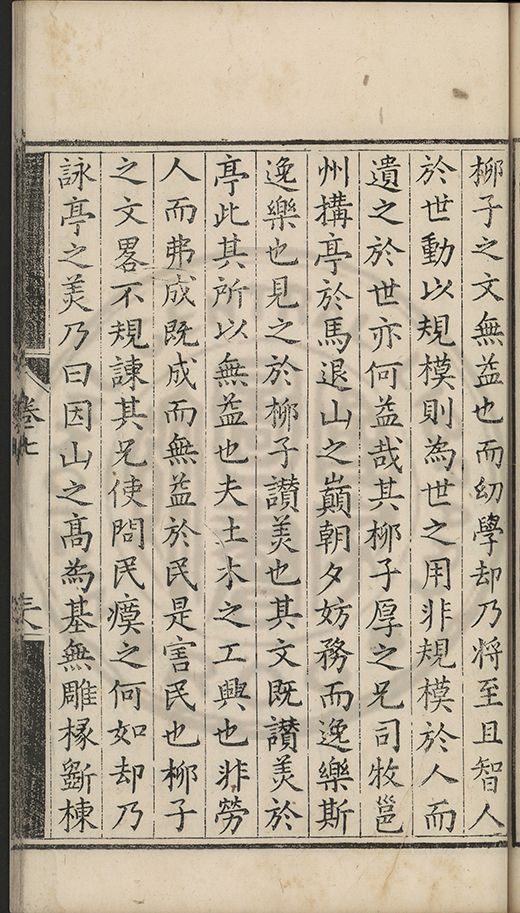 柳子之文無益也而幼學却乃將至且智人
於世動以規模則為世之用非規模於人而
遺之於世亦何益哉其柳子厚之兄司牧邕
州搆亭於馬退山之巔朝夕妨務而逸樂斯
逸樂也見之於柳子讃美也其文既讃美於
亭此其所以無益也夫土木之工興也非勞
人而弗成既成而無益於民是害民也柳子
之文畧不規諫其兄使問民瘼之何如却乃
詠亭之美乃曰因山之髙為基無雕椽斵棟
卷七